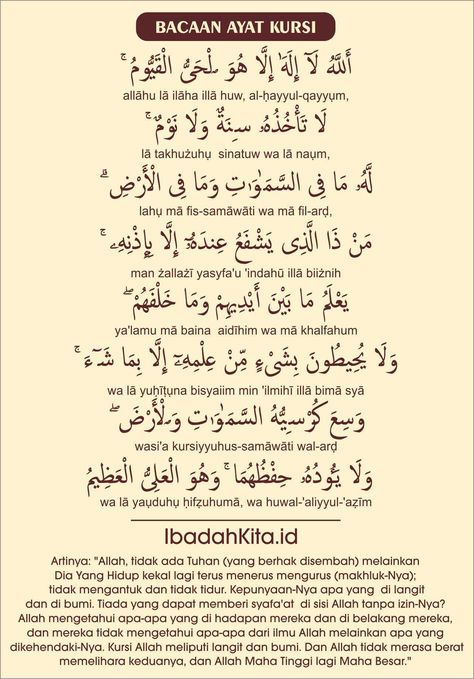 BACAAN AYAT KURSI
ٱللَّهُ لَآ إِلَٰهَ إِلَّا هُوَ ٱلْحَىُّ ٱلْقَيُّومُ ۚ
allāhu lā ilāha illā huw, al-ḥayyul-qayyụm,
لَا تَأْخُذُهُۥ سِنَةٌ وَلَا نَوْمٌ ۚ
lā takhużuhụ sinatuw wa lā naụm,
لَّهُۥ مَا فِى ٱلسَّمَٰوَٰتِ وَمَا فِى ٱلْأَرْضِ ۗ
lahụ mā fis-samāwāti wa mā fil-arḍ,
مَن ذَا ٱلَّذِى يَشْفَعُ عِندَهُۥٓ إِلَّا بِإِذْنِهِۦ ۚ
man żallażī yasyfa'u 'indahū illā biiżnih
يَعْلَمُ مَا بَيْنَ أَيْدِيهِمْ وَمَا خَلْفَهُمْ ۖ
ya'lamu mā baina aidīhim wa mā khalfahum
وَلَا يُحِيطُونَ بِشَىْءٍ مِّنْ عِلْمِهِۦٓ إِلَّا بِمَا شَآءَ ۚ
wa lā yuḥīṭụna bisyaiim min 'ilmihī illā bimā syā
وَسِعَ كُرْسِيُّهُ ٱلسَّمَٰوَٰتِ وَٱلْأَرْضَ ۖ
wasi'a kursiyyuhus-samāwāti wal-arḍ
وَلَا يَـُٔودُهُۥ حِفْظُهُمَا ۚ وَهُوَ ٱلْعَلِىُّ ٱلْعَظِيمُ
wa lā yaụduhụ ḥifẓuhumā, wa huwal-'aliyyul-'aẓīm
IbadahKita.id
Artinya: "Allah, tidak ada Tuhan (yang berhak disembah) melainkan
Dia Yang Hidup kekal lagi terus menerus mengurus (makhluk-Nya);
tidak mengantuk dan tidak tidur. Kepunyaan-Nya apa yang di langit
dan di bumi. Tiada yang dapat memberi syafa'at di sisi Allah tanpa izin-Nya?
Allah mengetahui apa-apa yang di hadapan mereka dan di belakang mereka,
dan mereka tidak mengetahui apa-apa dari ilmu Allah melainkan apa yang
dikehendaki-Nya. Kursi Allah meliputi langit dan bumi. Dan Allah tidak merasa berat
memelihara keduanya, dan Allah Maha Tinggi lagi Maha Besar."